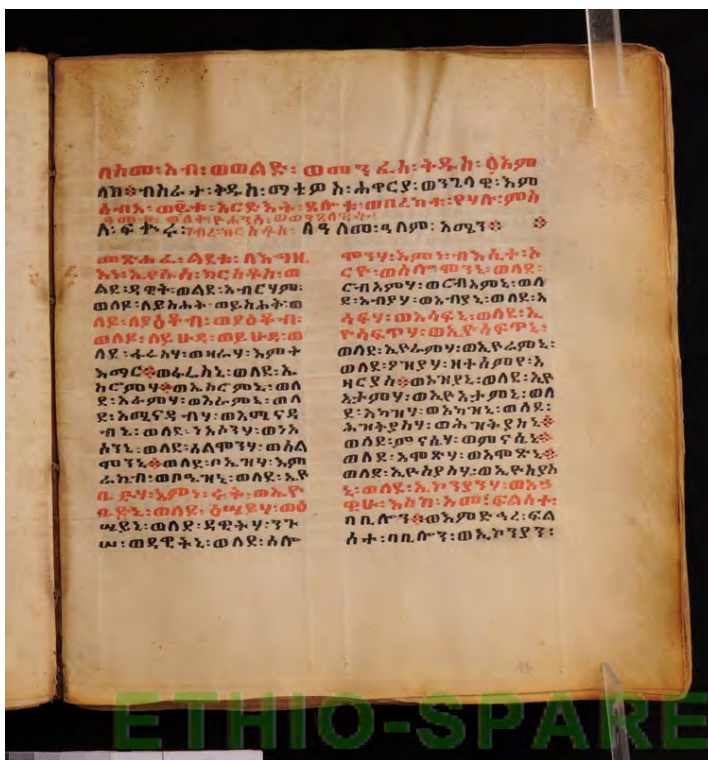 በስመ፡አብ፡ወወልድ፡ወመንፈስ፡ቅዱስ፡፩አም
ላክ፨ብስራት፡ቅዱስ፡ማቴዎስ፡ሐዋርያ፡ወንጌላዊ፡እም
ጸሎቱ፡ወበረከቱ፡የሃሉ፡ምስ
ለ፡ፍቁሩ፡ገብረ፡ክርስቶስ፡ለዓለመ፡ዓለም፡አሜን፨
መጽሐፈ፡ልደቱ፡ለእግዚ
እነ፡ኢየሱስ፡ክርስቶስ፡ወ
ልደ፡ዳዊት፡ወልደ፡አብርሃም፡
ወለዶ፡ለይስሐቅ፡ወይስሐቅ፡ወ
ለዶ፡ለያዕቆብ፡ወያዕቆብ፡
ወለዶ፡ለይሁዳ፡ወይሁዳ፡ወ
ለደ፡ፋሬስሃ፡ወዛራሃ፡እምት
እማር፨ወፋሬስኒ፡ወለደ፡ኤ
ስሮምሃ፨ወኤስሮምኒ፡ወለ
ደ፡አራምሃ፡ወአራምኒ፡ወለ
ደ፡አሚናዳብሃ፡ወአሚናዳ
ብኒ፡ወለደ፡ነአሶንሃ፡ወነአ
ሶንኒ፡ወለደ፡ሰልሞንሃ፡ወሰል
ሞንኒ፨ወለደ፡ቦኤዝሃ፡እም
ራኬብ፡ወቦዔዝኒ፡ወለደ፡ኢዮ
ቤድሃ፡እምነ፡ሩት፡ወኢዮ
ቤድኒ፡ወለደ፡ዕሤይሃ፡ወዕ
ሤይኒ፡ወለደ፡ዳዊትሃ፡ንጉ
ሠ፡ወዳዊትኒ፡ወለደ፡ሰሎ
ሞንሃ፡እምነ፡ብእሲተ፡ኦ
ርዮ፡ወሰሎሞንኒ፡ወለደ፡
ሮብዓምሃ፡ወሮብዓምኒ፡ወለ
ደ፡አብያሃ፡ወአብያኒ፡ወለደ፡አ
ሳፍሃ፡ወአሳፍኒ፡ወለደ፡ኢ
ዮሳፍጥሃ፡ወኢዮሳፍጥኒ፡
ወለደ፡ኢዮራምሃ፡ወኢዮራምኒ፡
ወለደ፡ዖዝያሃ፡
ወለደ፡ኢዮ
አታምሃ፡ወኢዮአታምኒ፡ወለ
ደ፡አካዝሃ፡ወአካዝኒ፡ወለደ፡
ሕዝቅያስሃ፡ወሕዝቅያስኒ፨
ወለደ፡ምናሴሃ፡ወምናሴኒ፨
ወለደ፡አሞጽሃ፡ወአሞጽኒ፨
ወለደ፡ኢዮስያስሃ፡ወኢዮስያስ
ኒ፡ወለደ፡ኢኮንያንሃ፡ወአኃ
ዊሁ፡አመ፡ፍልሰተ፡
ባቢሎን፨ወእምድኅረ፡ፍል
ሰተ፡ባቢሎን፡ወኢኮንያን፡
ETHIO-SPARE